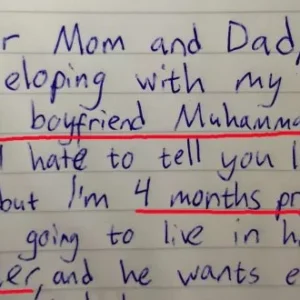 r Mom and Dad,
eloping with my
boyfriend Muhamma
I hate to tell you
but I'm 4 months pr
going to live in h
er, and he wants e